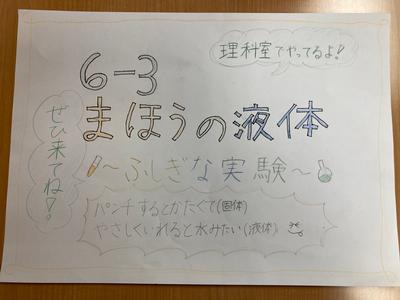 理科室でやってるよ!
6-3
まほうの液体
ぜひ来てね!
~ふしぎな実験~
パンチするとかたくて(固体)
やさしくいれると水みたい(液体)